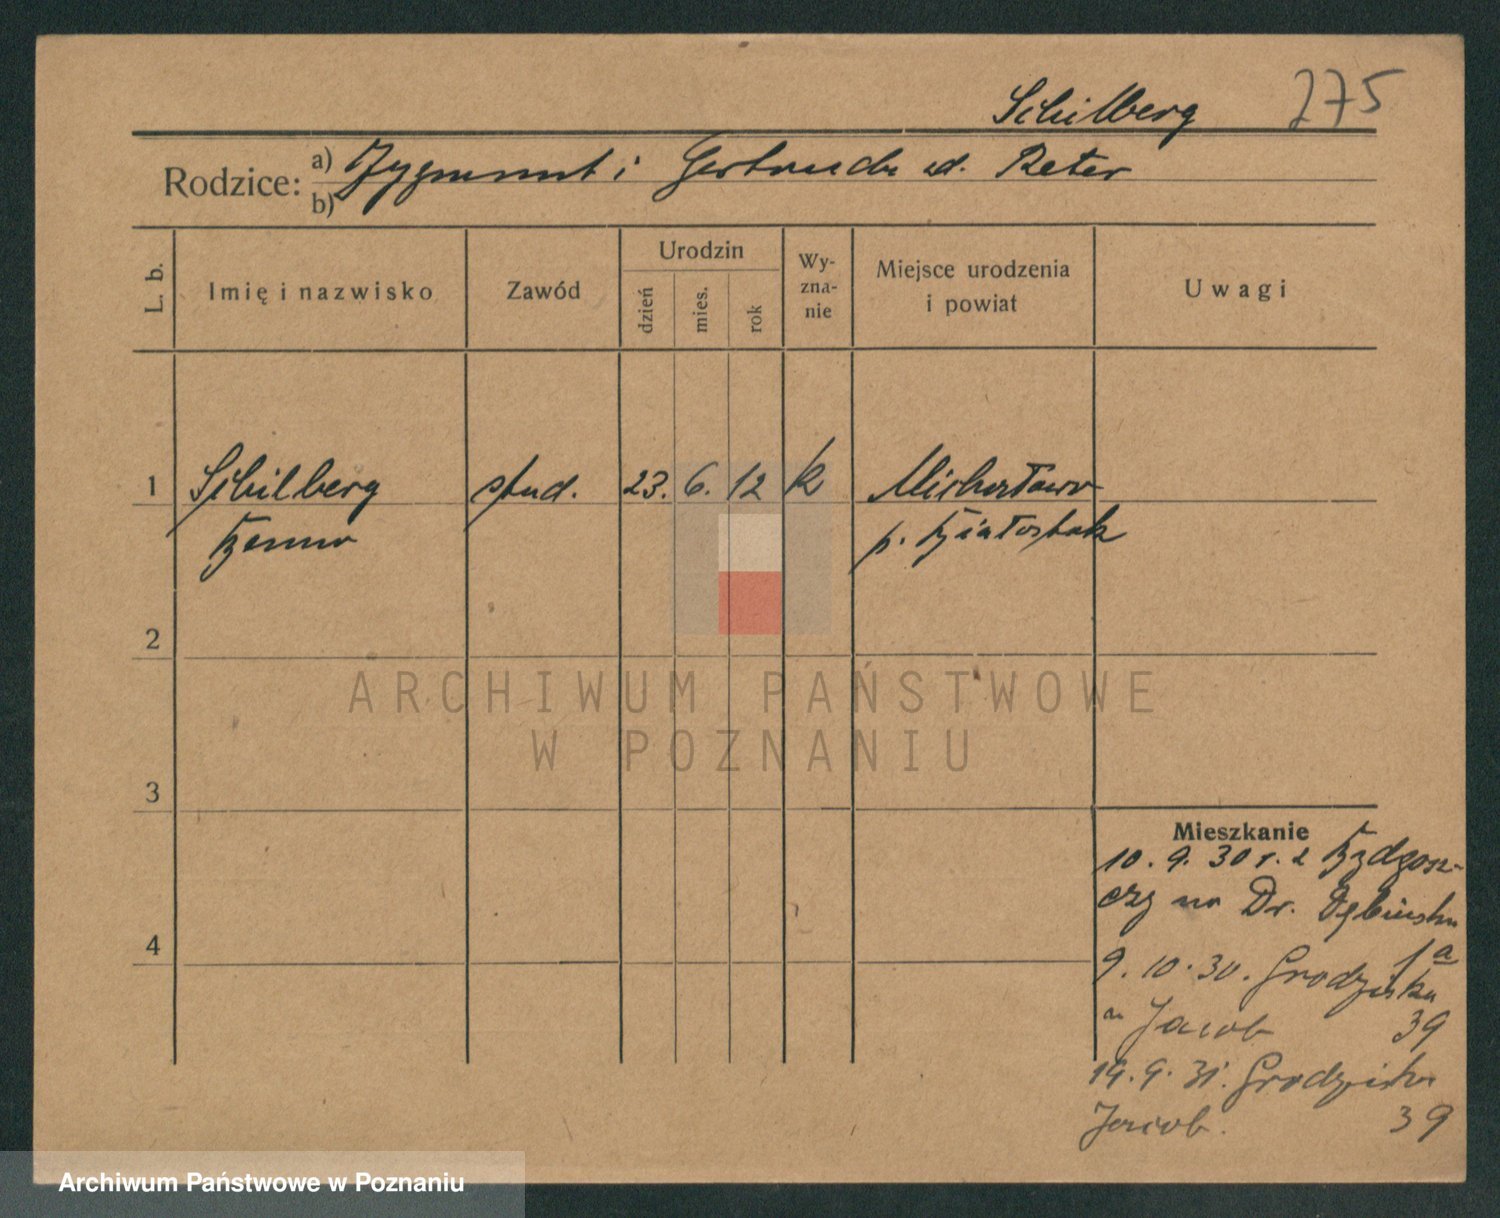 Schilberg 275
Rodzice: a) Zygmunt i Gertruda d. Peter
b)
L. b. Imię i nazwisko Zawód Urodzin dzień mies. rok Wy-zna-nie Miejsce urodzenia i powiat Uwagi
1 Schilberg stud. 23. 6. 12 k Michałowo
Benno p. Białostok
2
ARCHIWUM PAŃSTWOWE
W POZNANIU
3
Mieszkanie
10. 9. 30 r. z Bydgosz-
czy na Dr. Dębińska
1a
4
9. 10. 30. Grodziska
Jacob 39
14. 9. 31. Grodziska
Jacob. 39
Archiwum Państwowe w Poznaniu